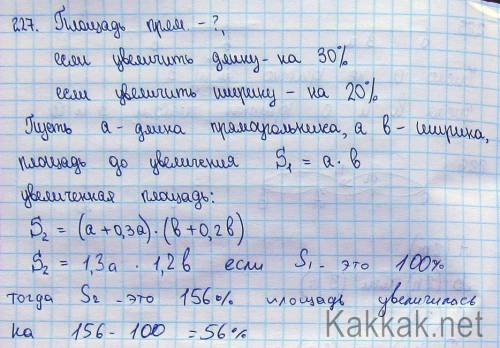 227. Площадь прям. - ?,
если увеличить длину - на 30%
если увеличить ширину - на 20%
Пусть а - длина прямоугольника, а в - ширина,
площадь до увеличения S₁ = а · в
увеличенная площадь:
S₂ = (а + 0,3а) · (в + 0,2в)
S₂ = 1,3а · 1,2в если S₁ - это 100%
тогда S₂ - это 156% площадь увеличилась
на 156 - 100 = 56%
Kakkak.net